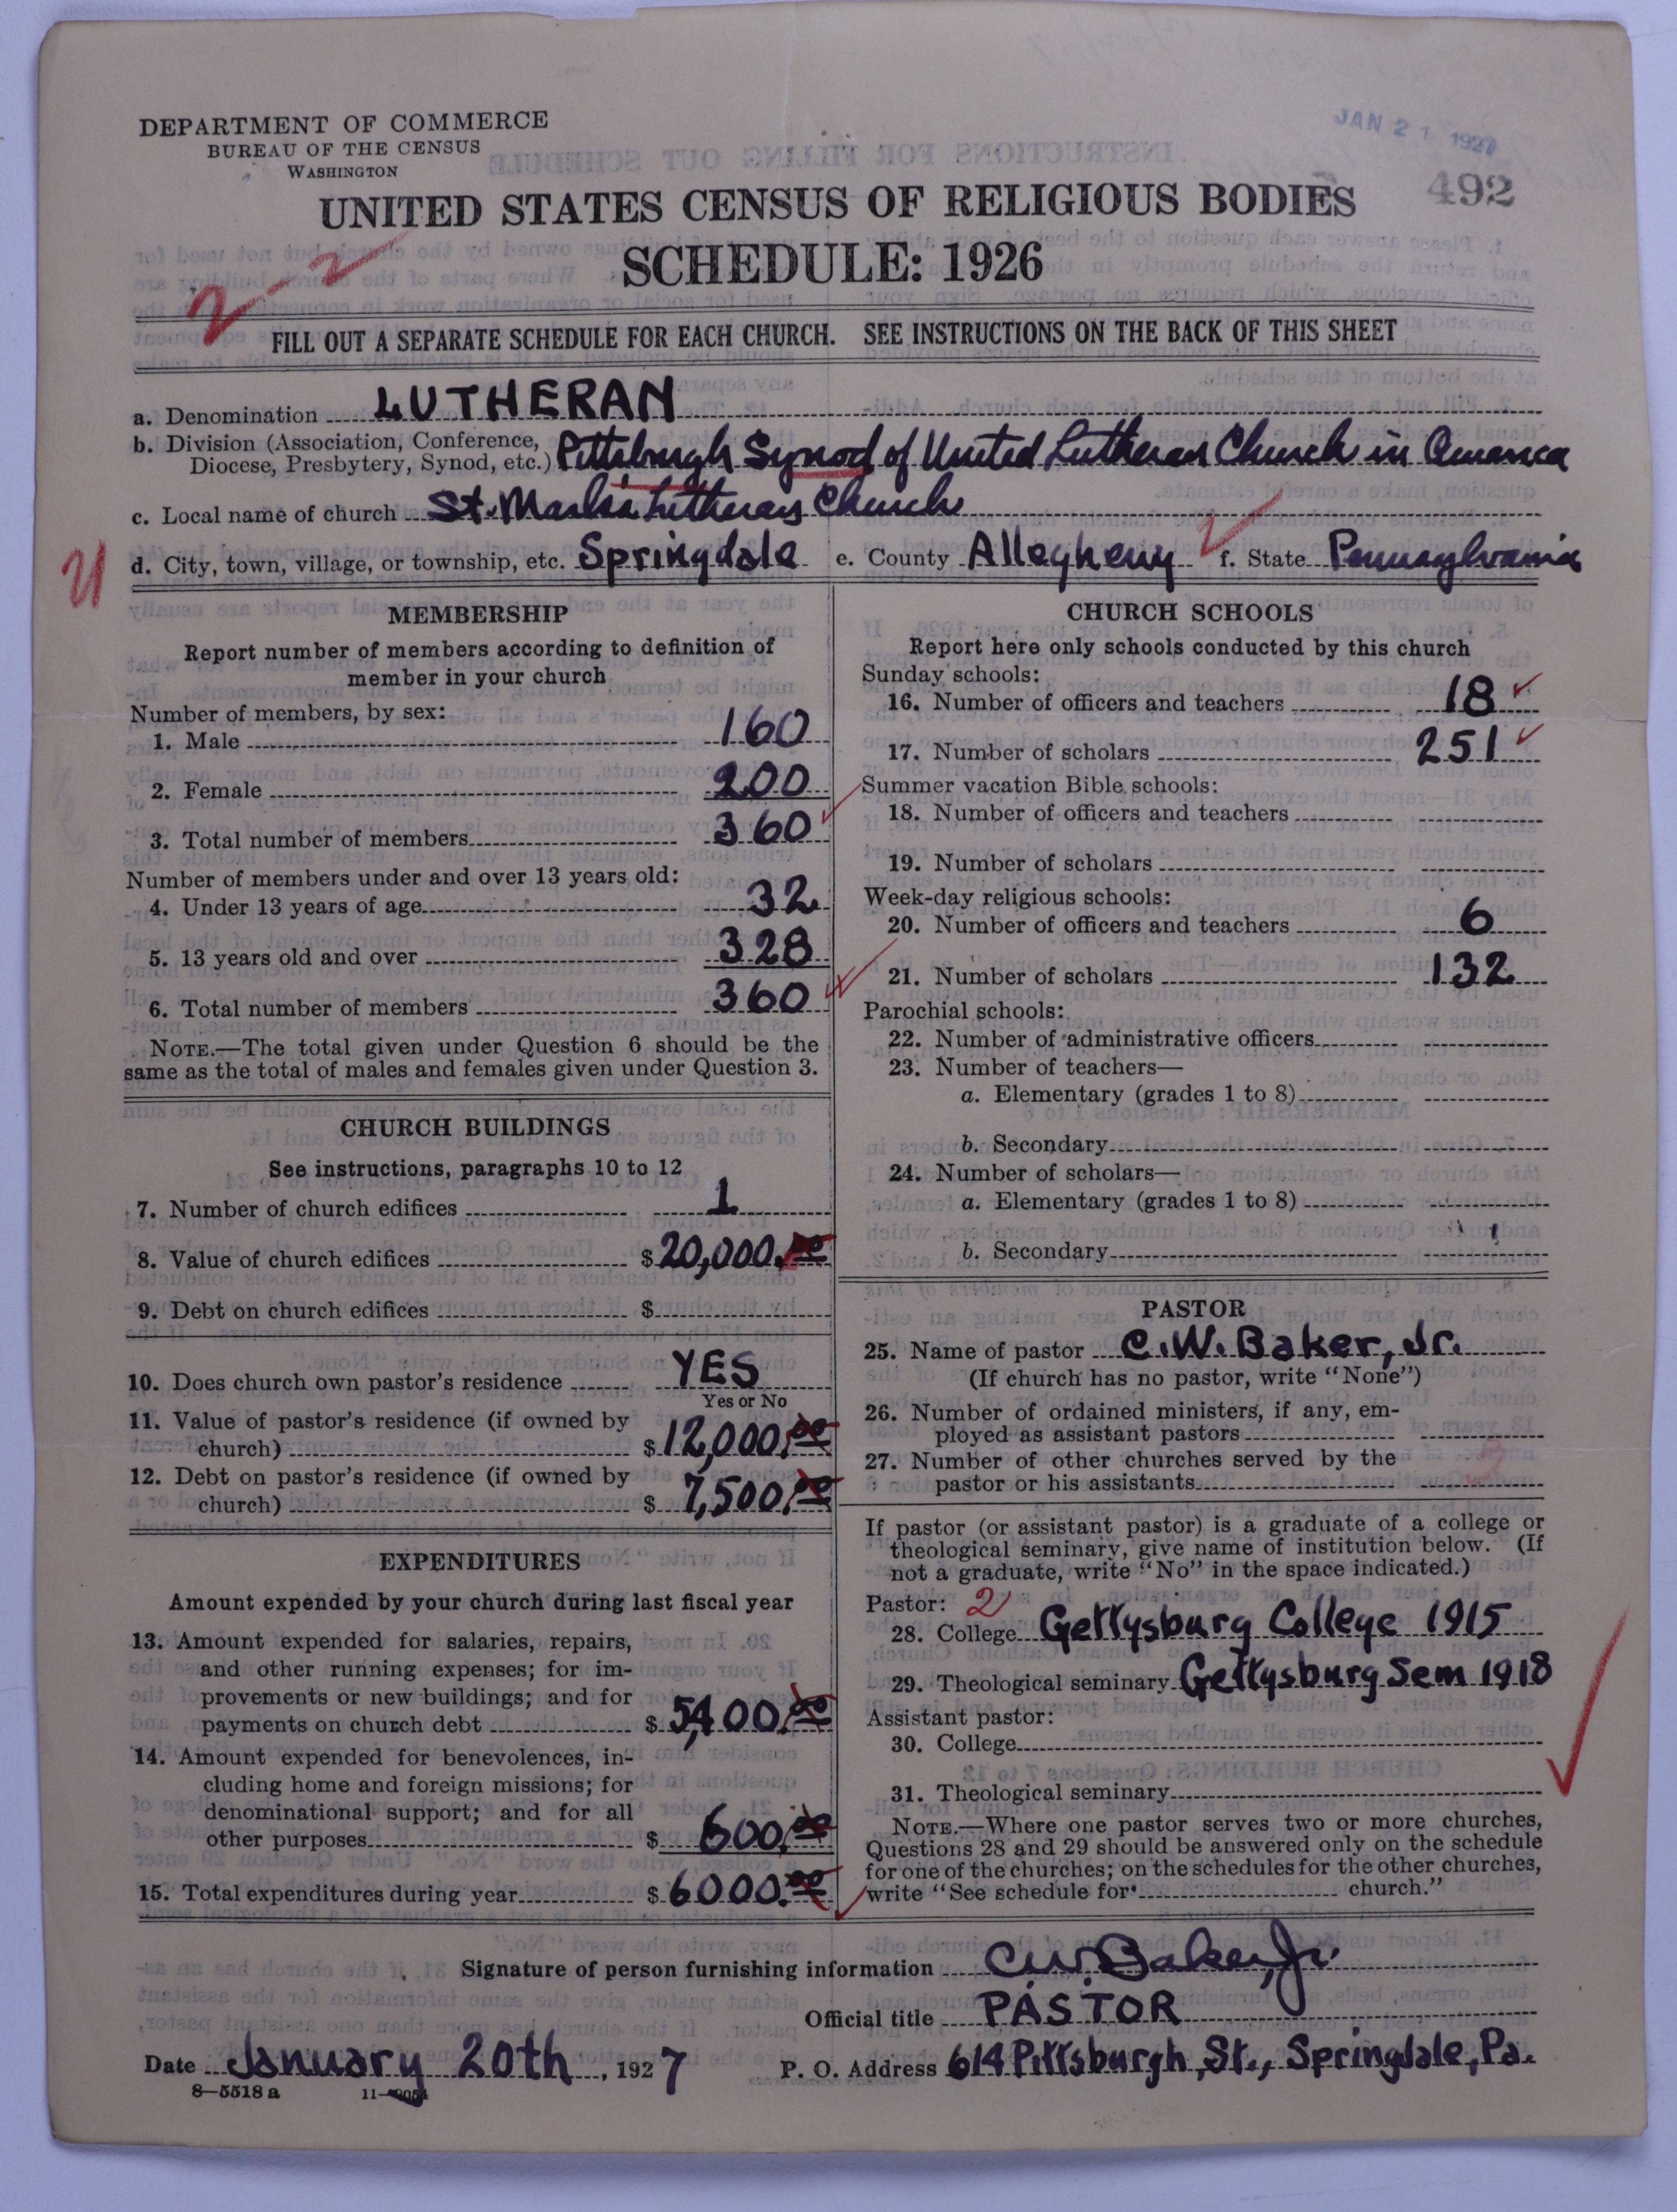 JAN 21 1927
DEPARTMENT OF COMMERCE
BUREAU OF THE CENSUS
WASHINGTON
492
UNITED STATES CENSUS OF RELIGIOUS BODIES
SCHEDULE: 1926
2-2
FILL OUT A SEPARATE SCHEDULE FOR EACH CHURCH. SEE INSTRUCTIONS ON THE BACK OF THIS SHEET
a. Denomination LUTHERAN
b. Division (Association, Conference, Diocese, Presbytery, Synod, etc.) Pittsburgh Synod of United Lutheran Church in America
c. Local name of church St. Mark's Lutheran Church
d. City, town, village, or township, etc. Springdale e. County Allegheny f. State Pennsylvania
MEMBERSHIP
Report number of members according to definition of
member in your church
Number of members, by sex:
1. Male 160
2. Female 200
3. Total number of members 360
Number of members under and over 13 years old:
4. Under 13 years of age 32
5. 13 years old and over 328
6. Total number of members 360
NOTE.—The total given under Question 6 should be the
same as the total of males and females given under Question 3.
CHURCH BUILDINGS
See instructions, paragraphs 10 to 12
7. Number of church edifices 1
8. Value of church edifices $20,000.00
9. Debt on church edifices $
10. Does church own pastor's residence YES
Yes or No
11. Value of pastor's residence (if owned by
church) $12,000.00
12. Debt on pastor's residence (if owned by
church) $7,500.00
EXPENDITURES
Amount expended by your church during last fiscal year
13. Amount expended for salaries, repairs,
and other running expenses; for im-
provements or new buildings; and for
payments on church debt $5,400.00
14. Amount expended for benevolences, in-
cluding home and foreign missions; for
denominational support; and for all
other purposes $600.00
15. Total expenditures during year $6000.00
CHURCH SCHOOLS
Report here only schools conducted by this church
Sunday schools:
16. Number of officers and teachers 18
17. Number of scholars 251
Summer vacation Bible schools:
18. Number of officers and teachers
19. Number of scholars
Week-day religious schools:
20. Number of officers and teachers 6
21. Number of scholars 132
Parochial schools:
22. Number of administrative officers
23. Number of teachers—
a. Elementary (grades 1 to 8)
b. Secondary
24. Number of scholars—
a. Elementary (grades 1 to 8)
b. Secondary
PASTOR
25. Name of pastor C.W. Baker, Jr.
(If church has no pastor, write "None")
26. Number of ordained ministers, if any, em-
ployed as assistant pastors
27. Number of other churches served by the
pastor or his assistants
If pastor (or assistant pastor) is a graduate of a college or
theological seminary, give name of institution below. (If
not a graduate, write "No" in the space indicated.)
Pastor: 2
28. College Gettysburg College 1915
29. Theological seminary Gettysburg Sem 1918
Assistant pastor:
30. College
31. Theological seminary
NOTE.—Where one pastor serves two or more churches,
Questions 28 and 29 should be answered only on the schedule
for one of the churches; on the schedules for the other churches,
write "See schedule for church."
Signature of person furnishing information C.W. Baker, Jr.
Official title PASTOR
Date January 20th, 1927 P. O. Address 614 Pittsburgh St., Springdale, Pa.
8—5518 a